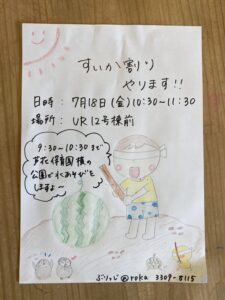 すいか割り
やります!!
日時：7月18日(金)10:30~11:30
場所：UR12号棟前
9:30~10:30まで
芦花保育園横の
公園で水あそびも
しますよ~
ぶりっじ@roka 3309-8115